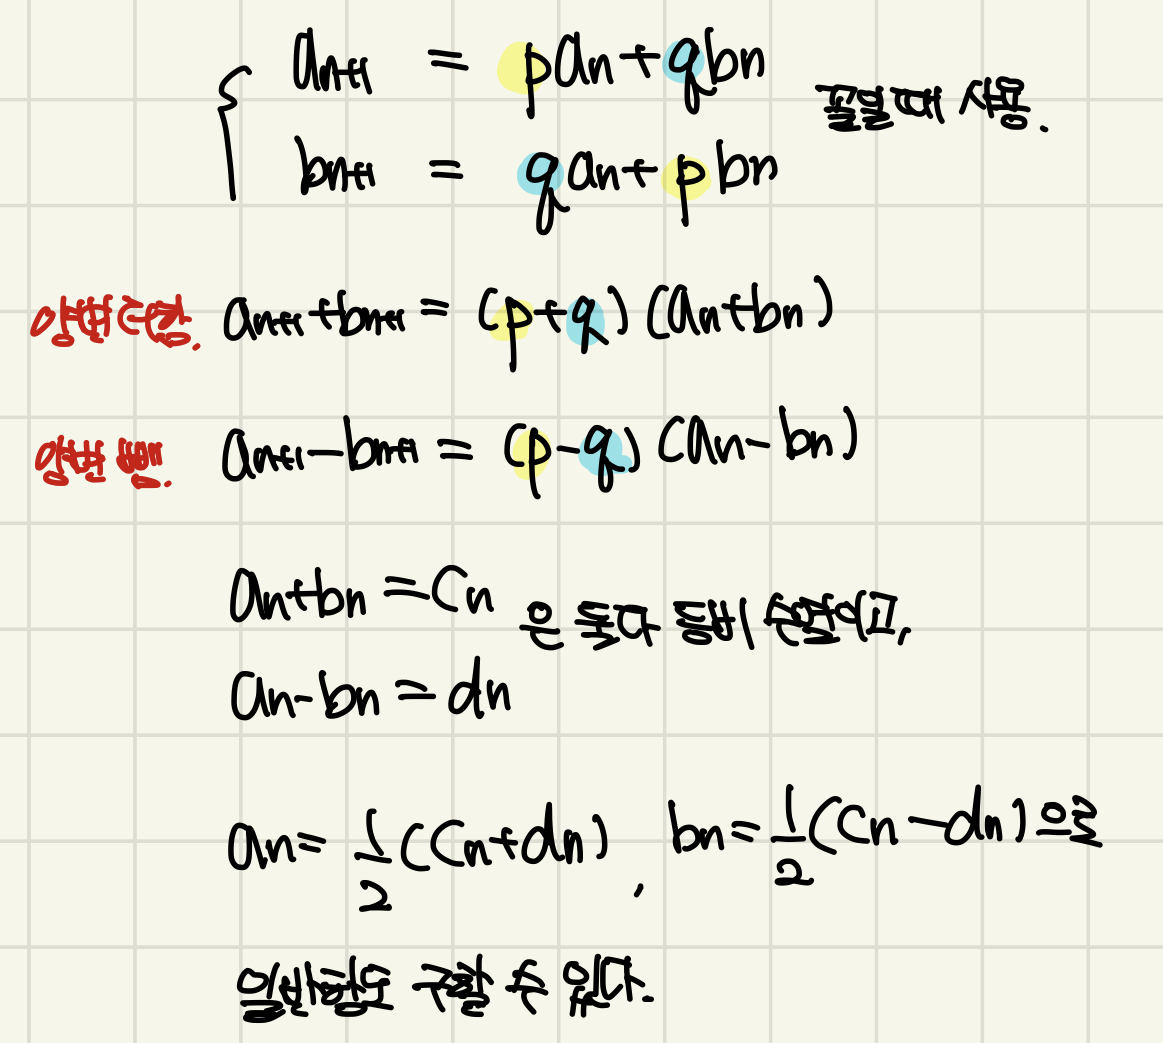 a_{n+1} = pa_n + qb_n
b_{n+1} = qa_n + pb_n
꼴일때 사용.
양변 더함. a_{n+1}+b_{n+1} = (p+q)(a_n+b_n)
양변 뺌. a_{n+1}-b_{n+1} = (p-q)(a_n-b_n)
a_n+b_n = C_n
은 둘다 등비 수열이고,
a_n-b_n = d_n
a_n = 1/2 (C_n+d_n), b_n = 1/2 (C_n-d_n) 으로
일반항도 구할 수 있다.